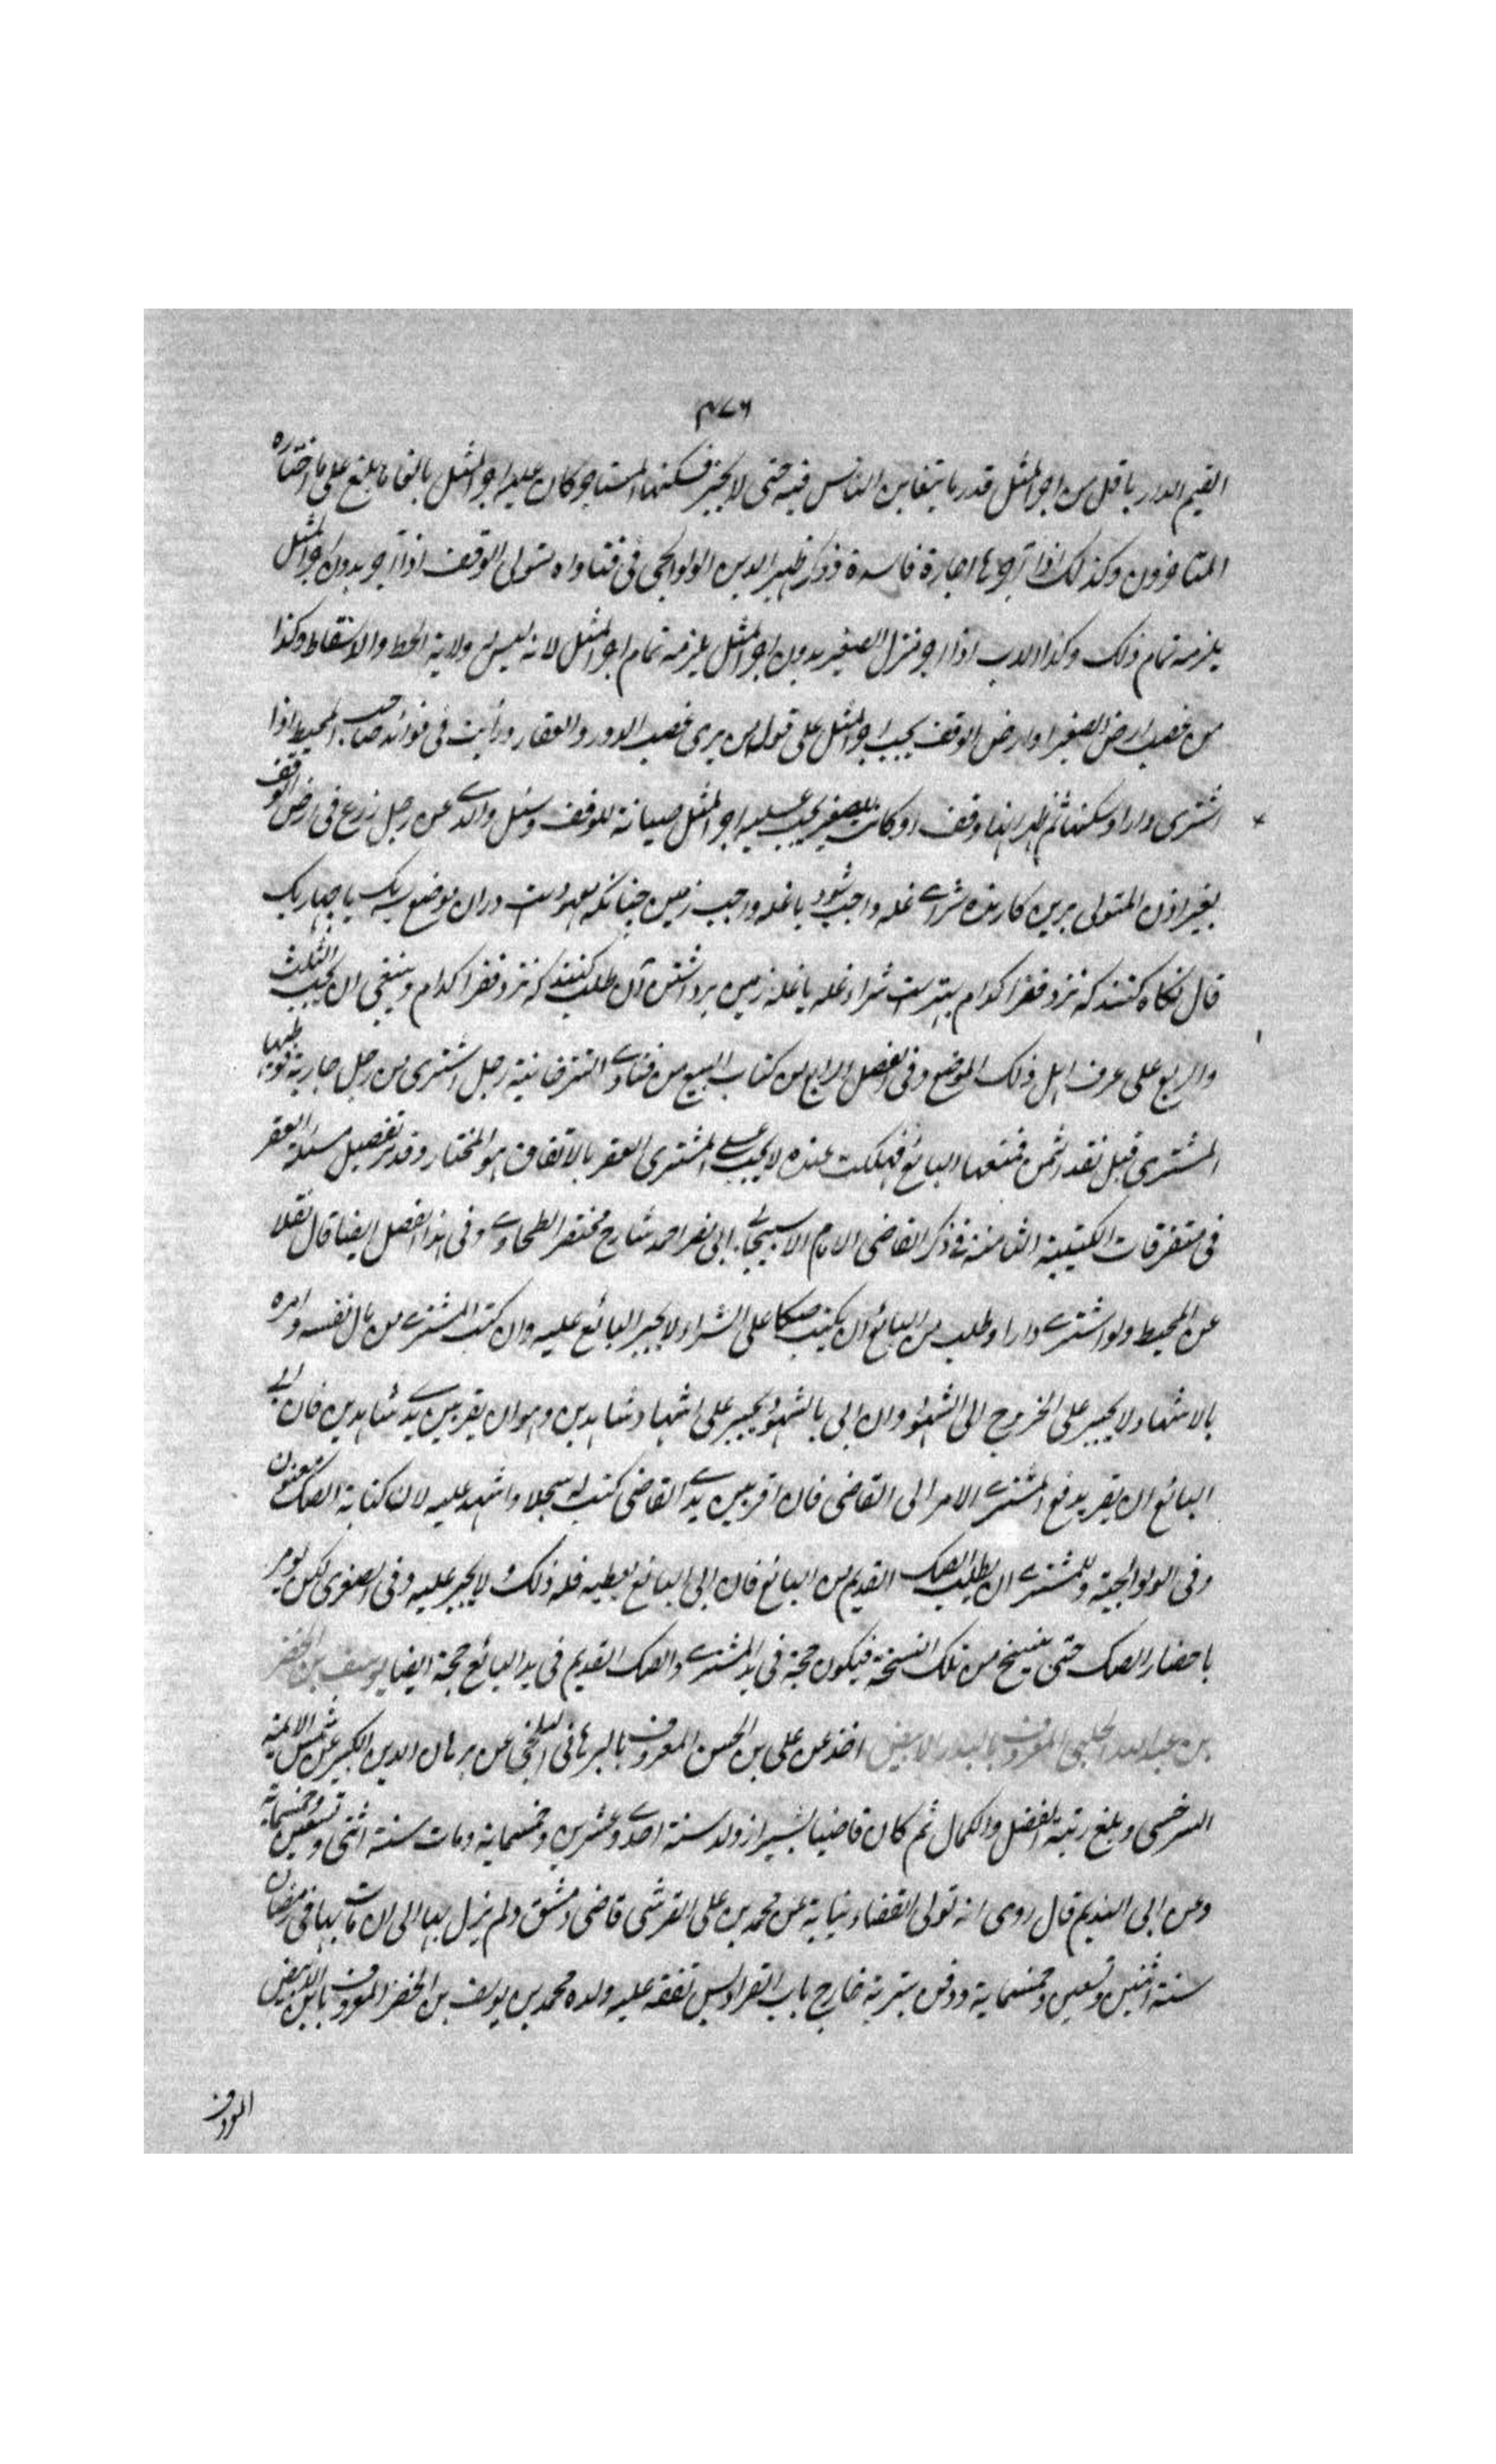 ۴۷۶
القيم الدار باقل من اجر المثل قدر ما يتغابن الناس فيه حتى لا يجز فسكنها المستاجر كان عليه اجر المثل بالغا ما بلغ على ما اختاره
المتاخرون وكذلك اذا آجرها اجارة فاسدة وذكر ظهير الدين الولوالجى فى فتاواه متولى الوقف اذا آجر بدون اجر المثل
يلزمه تمام ذلك وكذا الاب اذا اجر منزل الصغير بدون اجر المثل يلزمه تمام اجر المثل لانه ليس له ولاية الحط والاسقاط وكذا
من غصب ارض الصغير او ارض الوقف يجب اجر المثل على قول من يرى غصب الدور والعقار ورأيت فى فوائد صاحب المحيط اذا
اشترى دارا وسكنها ثم ظهر انها وقف او كانت للصغير يجب عليه اجر المثل صيانة للوقف وسئل والدے عن رجل زرع فى ارض الوقف
بغير اذن المتولى برين كارنده شراے غله واجب شود يا غله واجب زمين چنانكه معهودست دران موضع سه يك يا چهار يك
قال نگاه كنند كه نزد فقرا كدام بهترست شراء غله يا غله زمين برداشتن آن طلب كنند كه نزد فقرا كدام وينبغى ان يجب الثلث
والربع على عرف اهل ذلك الموضع وفى الفصل الرابع من كتاب البيع من فتاوے التترخانية رجل اشترى من رجل جارية فوطيها
المشترى قبل نقد الثمن فمنعها البائع فهلكت عنده لا يجب على المشترى العقر بالاتفاق هو المختار وقد مر تفصيل مسئلة العقر
فى متفرقات الكتيبة الثامنة فى ذكر القاضى الامام الاسبيجابى ابى نصر احمد شارح مختصر الطحاوے وفى هذا الفصل ايضا قال نقلا
عن المحيط ولو اشترے دارا وطلب من البائع ان يكتب صكا على الشراء لا يجبر البائع عليه وان كتب المشترے من مال نفسه وامره
بالاشهاد لا يجبر على الخروج الى الشهود وان اتى بالشهود يجبر على اشهاد شاهدين وهو ان يقر بين يدے شاهدين فان ابى
البائع ان يقر يرفع المشترے الامر الى القاضى فان اقر بين يدے القاضى كتب له سجلا واشهد عليه لان كتابة الصك
وفى الولوالجية وللمشترے ان يطلب الصك القديم من البائع فان ابى البائع يعطيه فله ذلك ولا يجبر عليه وفى الصغرى لكن يومر
باحضار الصك حتى ينسخ من تلك النسخة فيكون حجة فى يد المشترے والصك القديم فى يد البائع حجة ايضا يوسف بن الخضر
بن عبد الله الحلبى المعروف بالبدر الابيض اخذ عن على بن الحسن المعروف بالبرهانى البلخى عن برهان الدين الكبير عن شمس الائمة
السرخسى وبلغ رتبة الفضل والكمال ثم كان قاضيا بشيراز ولد سنة احدے وعشرين وخمسماية ومات سنة اثنى وتسعين وخمسماية
وعن ابى النديم قال روى انه تولى القضاء نيابة عن محمد بن على القرشى قاضى دمشق ولم يزل بها الى ان مات بها فى رمضان
سنة اثنين وتسعين وخمسماية ودفن بتربة خارج باب الفراديس تفقه عليه ولده محمد بن يوسف بن الخضر المعروف بابن الابيض
المعروف